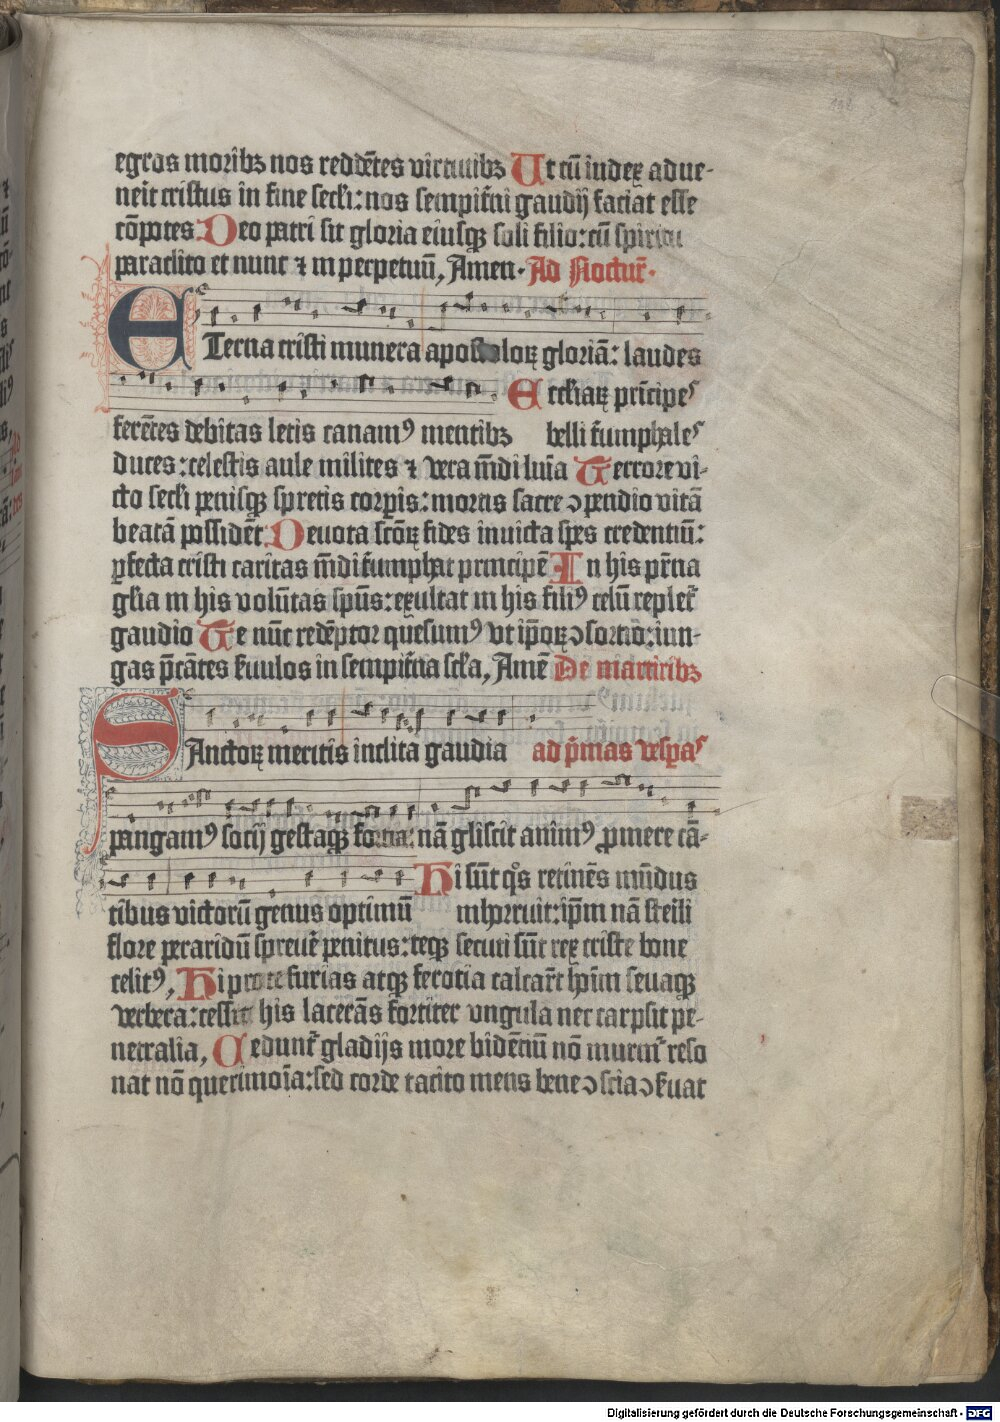 egros moribꝫ nos reddētes virtutibꝫ Ut cū iudex adue-
neit cristus in fine secli: nos sempit̄ni gaudij faciat esse
cōpotes: Deo patri sit gloria eiusqꝫ soli filio: cū spiritu
paraclito et nunc ⁊ in perpetuū, Amen. Ad Nocturͣ.
ETerna cristi munera apostoloꝝ gloriā: laudes
ferētes debitas letis canamꝰ mentibꝫ
Eccliaꝝ prīcipes
belli t̄umphales
duces: celestis aule milites ⁊ vera m̄di luīa Terrore vi-
cto secli penisqꝫ spretis corꝑis: mortis sacre ɔpendio vitā
beatā possidēt Deuota scōꝝ fides inuicta spes credentiū:
ꝑfecta cristi caritas m̄di t̄umphat principē In his pr̄na
glia in his volūtas spūs: exultat in his filiꝰ celū repletͬ
gaudio Te nūc redēptor quesumꝰ vt ip̄oꝝ ɔsortio: iun-
gas p̄cātes s̄uulos in sempit̄na scla, Amē De martiribꝫ
SAnctoꝝ meritis inclita gaudia ad p̄mas vesꝑas
pangamꝰ socij gestaqꝫ fortia: nā gliscit animꝰ ꝓmere cā-
tibus victorū genus optimū
Hi sūt qͦs retinēs mūdus
inhorruit: ip̄m nā steili
flore peraridū spreuē penitus: teqꝫ secuti sūt rex criste bone
celitꝰ, Hi pro te furias atqꝫ ferocia calcar̄t hoīm seuaqꝫ
verbera: cessit his lacerās fortiter vngula nec carpsit pe-
netralia, Cedunt̄ gladijs more bidētiū nō murm̄ reso
nat nō querimoīa: sed corde tacito mens bene ɔscia ɔs̄uat
Digitalisierung gefördert durch die Deutsche Forschungsgemeinschaft - DFG